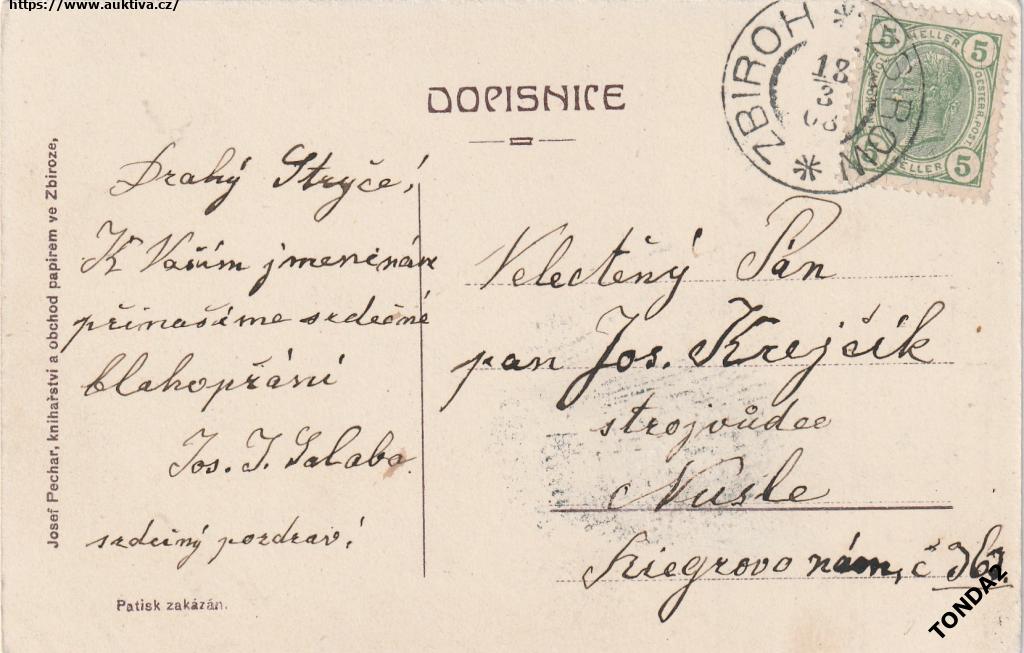 https://www.auktiva.cz/
DOPISNICE
ZBIROH
ZBIROW
18
3
08
5 HELLER 5
OESTERR. POST
5
HELLER
Josef Pechar, knihařství a obchod papírem ve Zbiroze,
Drahý Strýče!
K Vaším jmeninám
přinašíme srdečné
blahopřání
Jos. J. Salaba
srdečný pozdrav!
Patisk zakázán.
Velectěný Pán
pan Jos. Krejčík
strojvůdce
Nusle
Riegrovo nám, č
TONDA2